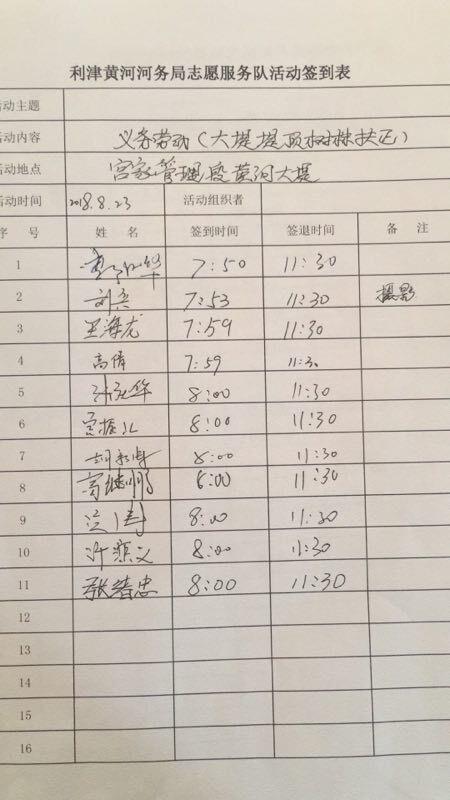 利津黄河河务局志愿服务队活动签到表
活动主题
活动内容 义务劳动(大堤堤顶树株扶正)
活动地点 宫家管理段黄河大堤
活动时间 2018.8.23 活动组织者
序 号 姓 名 签到时间 签退时间 备 注
1 7:50 11:30
2 刘兵 7:53 11:30 摄影
3 王海龙 7:59 11:30
4 高倩 7:59 11:30
5 8:00 11:30
6 8:00 11:30
7 8:00 11:30
8 8:00 11:30
9 8:00 11:30
10 8:00 11:30
11 8:00 11:30
12
13
14
15
16